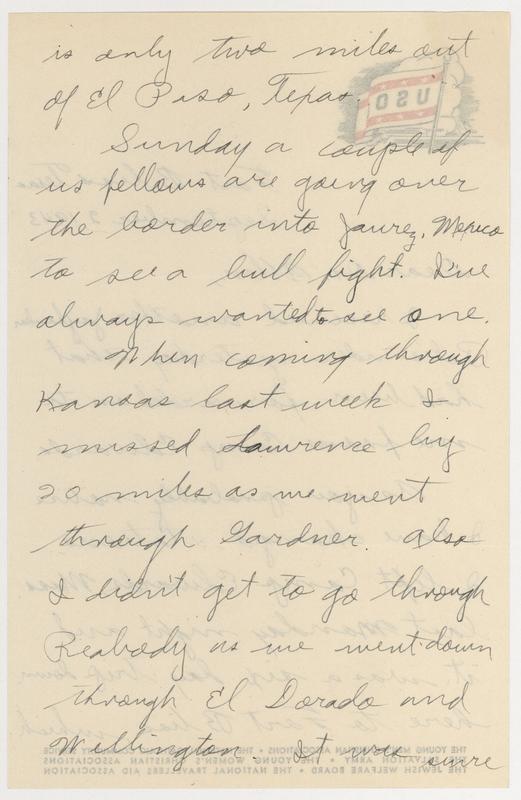 is only two miles out
of El Paso, Texas.
Sunday a couple of
us fellows are going over
the border into Jaurez, Mexico
to see a bull fight. I've
always wanted to see one.
When coming through
Kansas last week I
missed Lawrence by
20 miles as we went
through Gardner. Also
I didn't get to go through
Peabody as we went down
through El Dorado and
Wellington. It was sure
USO
THE YOUNG MEN'S CHRISTIAN ASSOCIATIONS • THE NATIONAL CATHOLIC COMMUNITY SERVICE
THE SALVATION ARMY • THE YOUNG WOMEN'S CHRISTIAN ASSOCIATIONS
THE JEWISH WELFARE BOARD • THE NATIONAL TRAVELERS AID ASSOCIATIONS